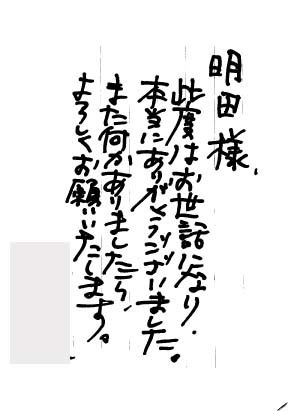 明田様、
此度はお世話になり、
本当にありがとうございました。
また何かありましたら、
よろしくお願いいたします。